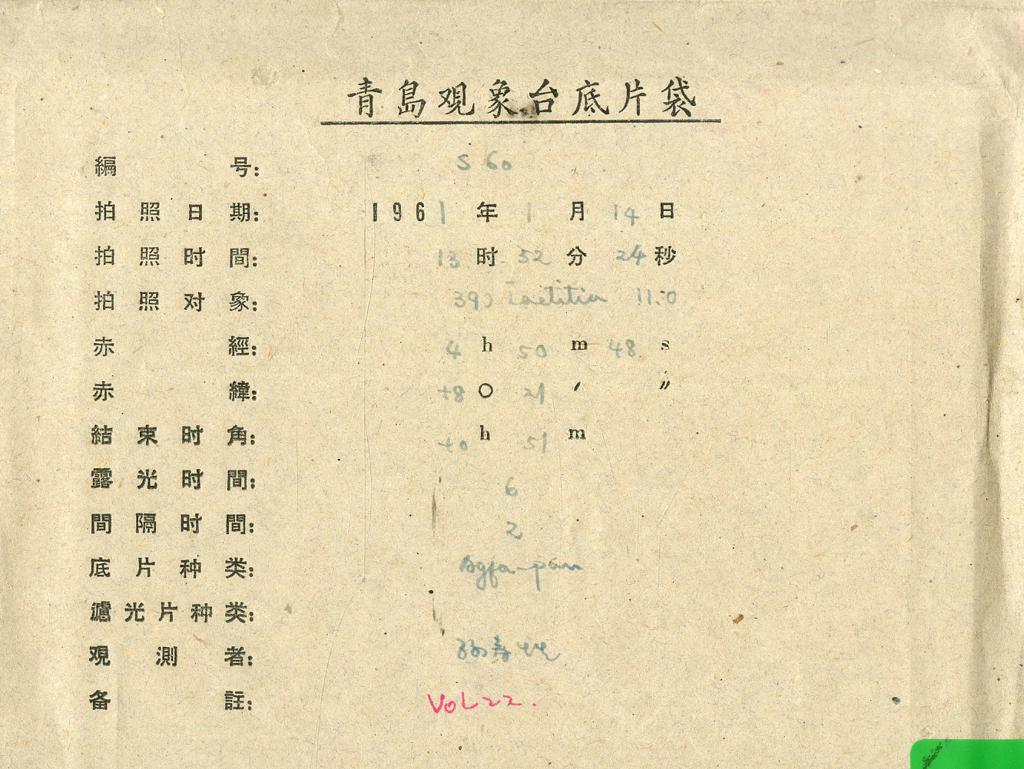 青島观象台底片袋
編号: S 60
拍照日期: 1961年1月14日
拍照时間: 13时52分24秒
拍照对象: (39) Laetitia 11.0
赤經: 4h 50m 48s
赤緯: +8° 21′ ″
結束时角: +0h 51m
露光时間: 6
間隔时間: 2
底片种类: Agfa-pan
濾光片种类:
观測者:
备註: VOL 22.